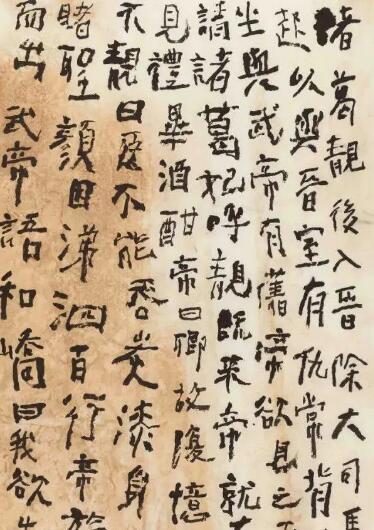 諸葛靚後入晉除大司馬
起以與晉室有仇常背
坐與武帝有舊帝欲見之
請諸葛妃呼靚既來帝就
見禮畢酒酣帝曰卿故復憶
不靚曰臣不能吞炭漆身
睹聖顏因涕泗百行帝於
而出 武帝語和嶠曰我欲